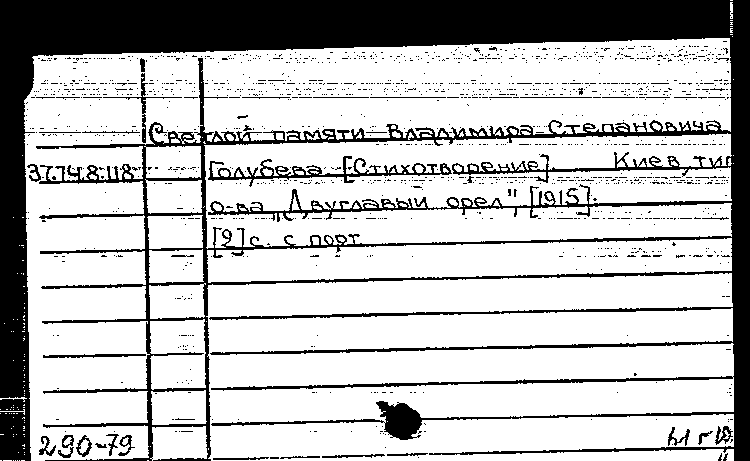 Светлой памяти Владимира Степановича
37.74.8.118 Голубева [Стихотворение]. Киев, тип
о-ва „Двуглавый орел", [1915].
[2] с. с порт
290-79